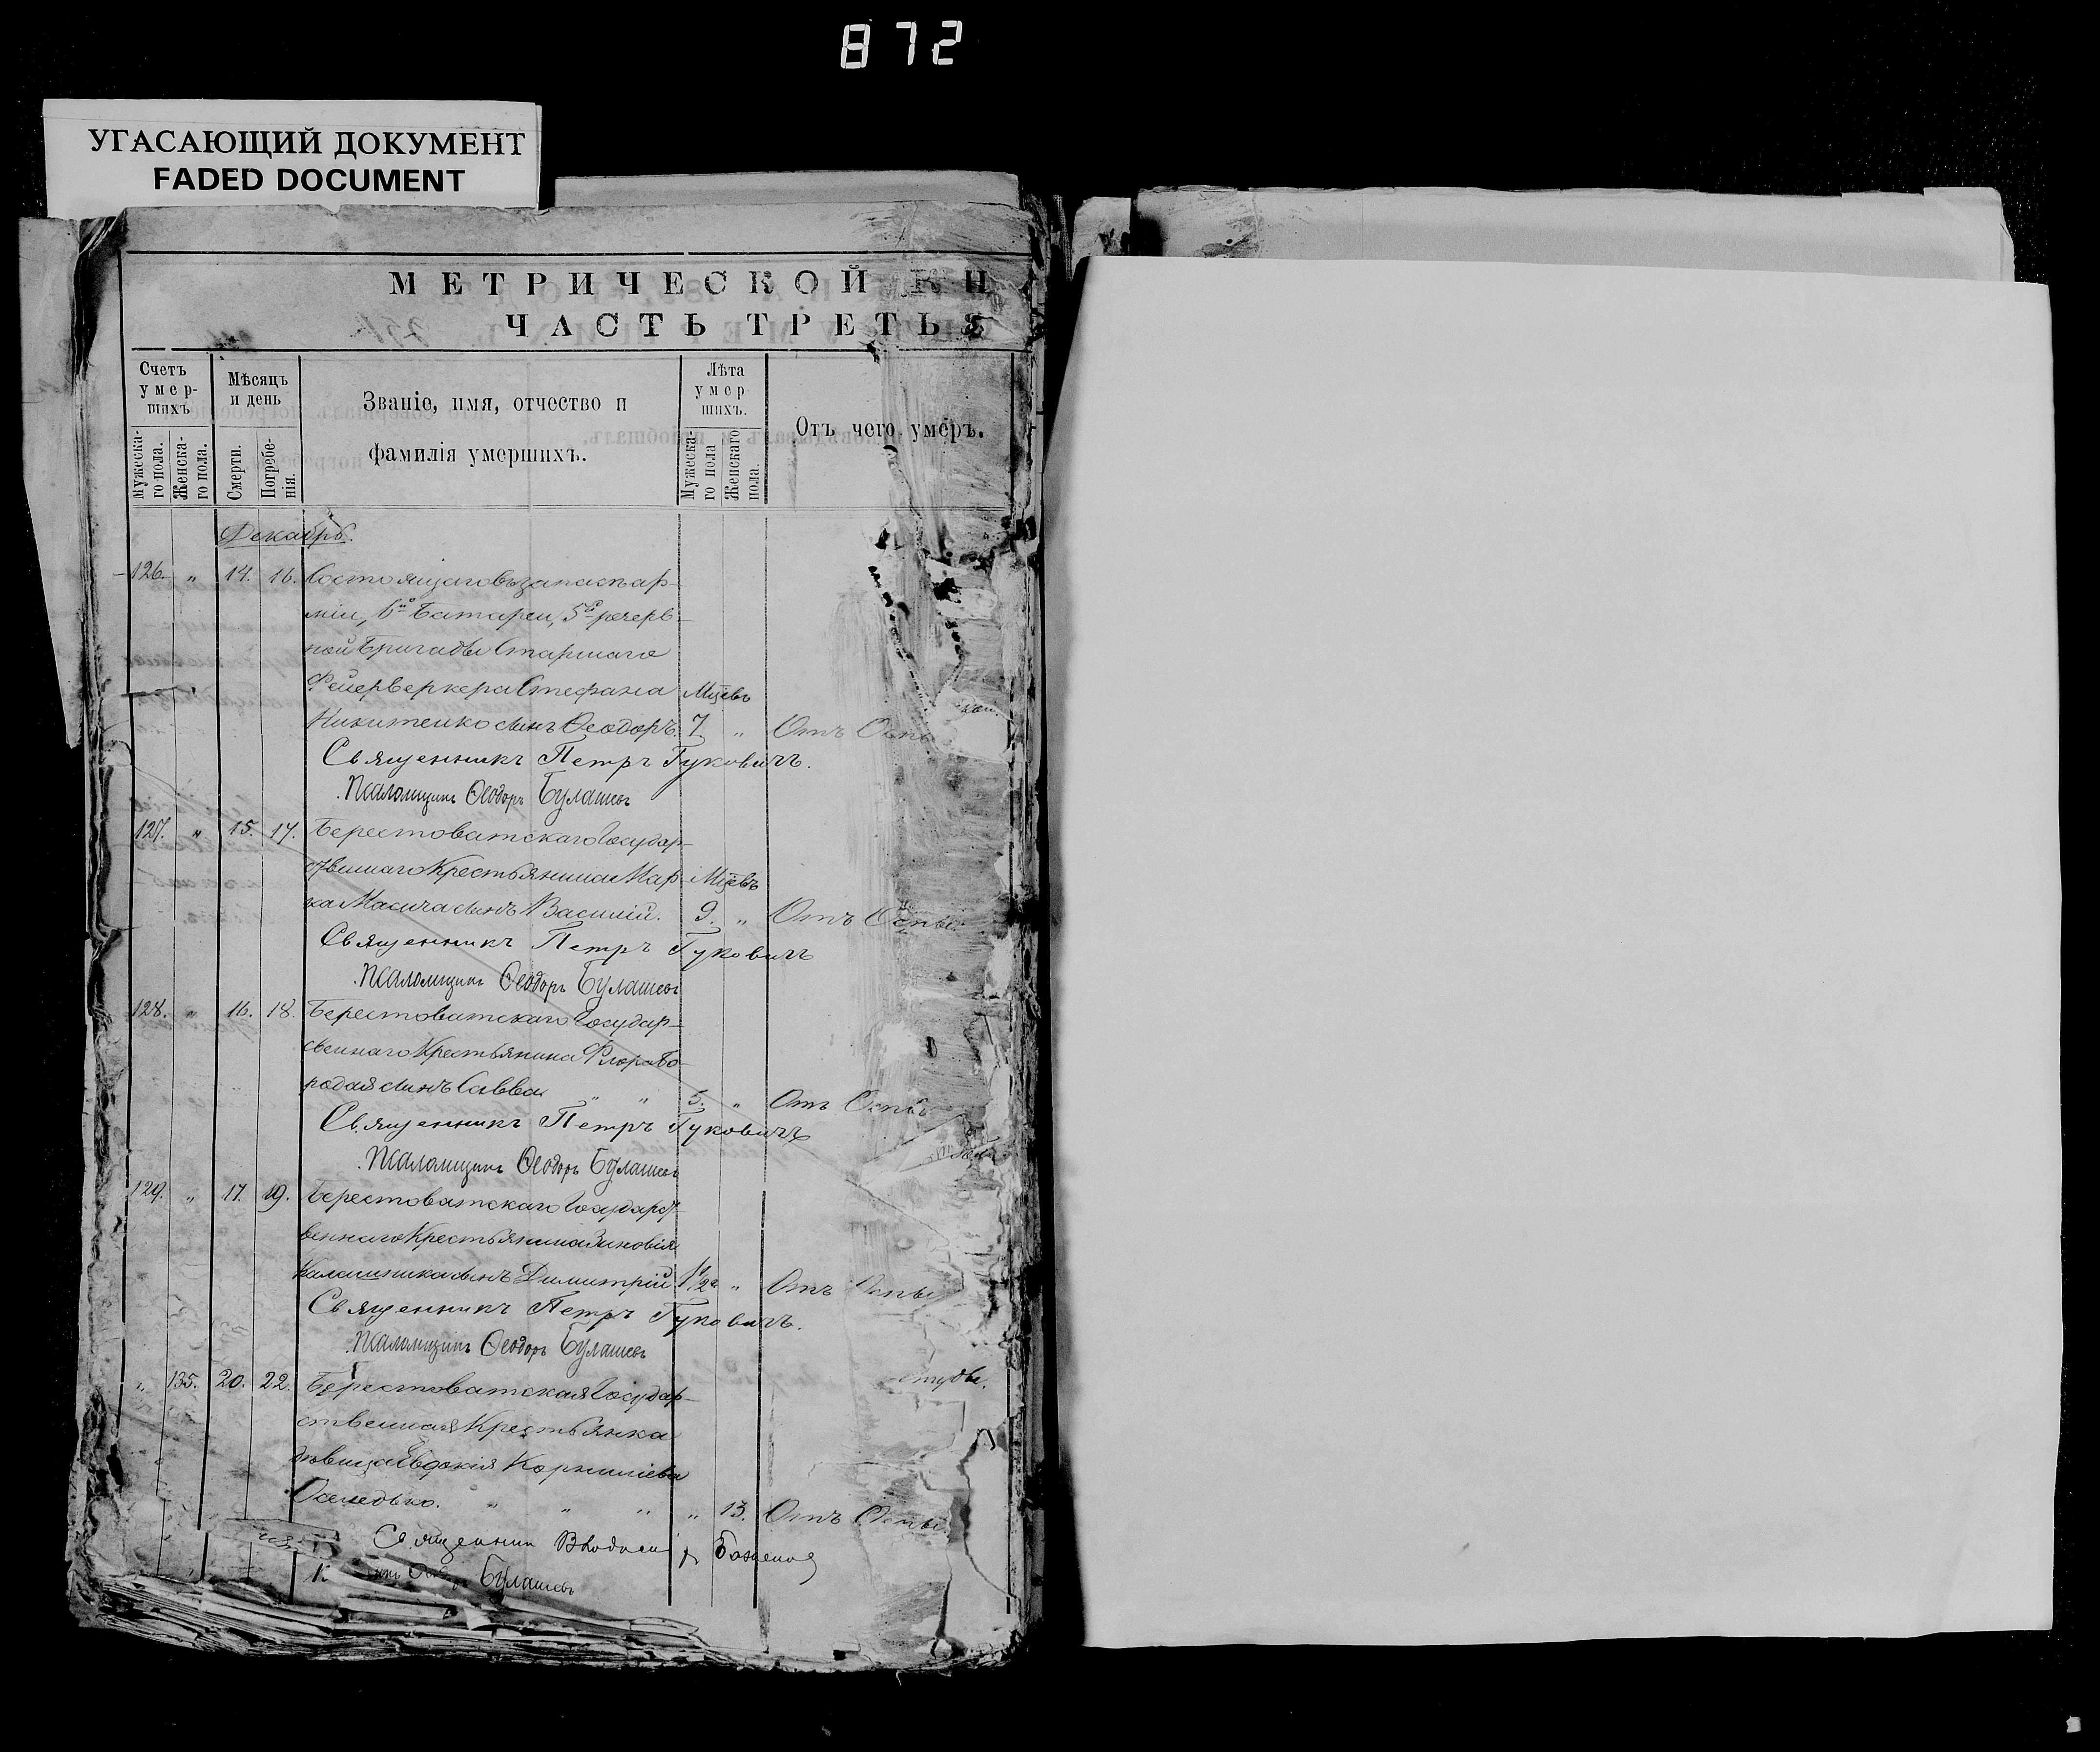 872
УГАСАЮЩИЙ ДОКУМЕНТ
FADED DOCUMENT
МЕТРИЧЕСКОЙ КН
ЧАСТЬ ТРЕТЬЯ
Счетъ умер-шихъ
Мужеска-го пола.
Женска-го пола.
Мѣсяцъ и день
Смерти.
Погребе-нія.
Званіе, имя, отчество и
фамилія умершихъ.
Лѣта умер шихъ.
Мужеска-го пола
Женскаго пола.
Отъ чего умеръ.
Декабрь.
126. " 14. 16. Состоящаго въ запасѣ ар-
міи, 6й Батареи, 5й резерв-
ной Бригады Старшаго
Фейерверкера Стефана Мцевъ
Никитенко сынъ Ѳеодоръ. 7 " Отъ Оспы
Священникъ Петръ Гуковичъ.
Псаломщикъ Ѳеодоръ Булашевъ
127. " 15. 17. Берестоватскаго Государ-
ственнаго Крестьянина Мар- Мцевъ
ка Масича сынъ Василій. 9. " Отъ Оспы
Священникъ Петръ Гуковичъ
Псаломщикъ Ѳеодоръ Булашевъ
128. " 16. 18. Берестоватскаго Государ-
ственнаго Крестьянина Флора Бо-
родая сынъ Савва " " 5. " Отъ Оспы
Священникъ Петръ Гуковичъ
Псаломщикъ Ѳеодоръ Булашевъ
129. " 17. 19. Берестоватскаго Государст-
веннаго Крестьянина Зиновія
Калашника сынъ Димитрій 1 1/2 " Отъ Оспы
Священникъ Петръ Гуковичъ.
Псаломщикъ Ѳеодоръ Булашевъ
" 135. 20. 22. Берестоватская Государ-
ственная Крестьянка
дѣвица Евдокія Корнилиева
Оселедько. " " " " 13. Отъ Оспы
Священник
Булашевъ